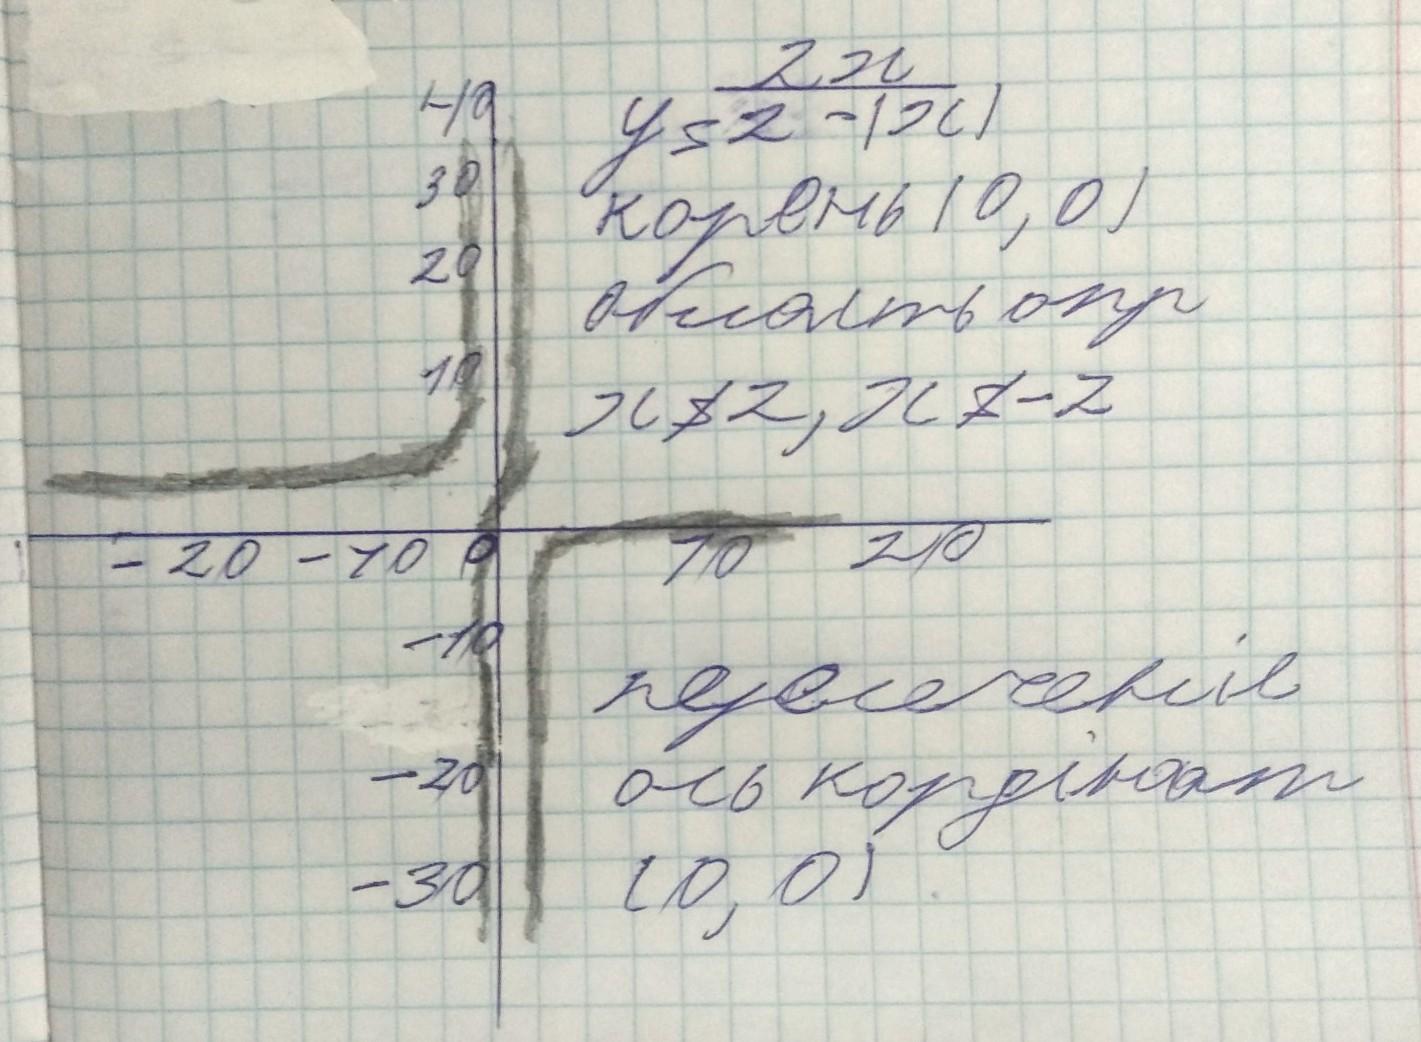 2x
y = 2 - |x|
корень (0, 0)
область опр
x ≠ 2, x ≠ -2
40
30
20
10
-20 -10 0 10 20
-10
-20
-30
пересеченіе
ось кордінат
(0, 0)